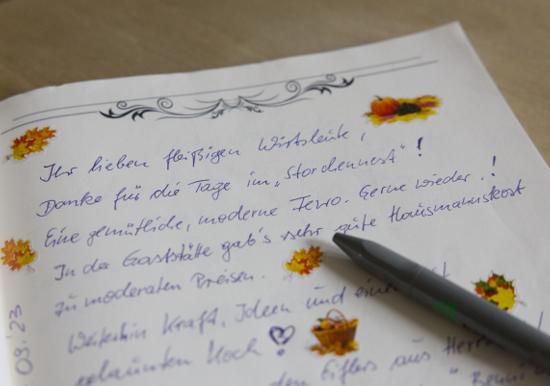 Ihr lieben fleißigen Wirtsleute,
Danke für die Tage im „Storchennest"!
Eine gemütliche, moderne Fewo. Gerne wieder.!
In der Gaststätte gab's sehr gute Hausmannskost
zu moderaten Preisen.
Weiterhin Kraft, Ideen und einen
gelaunten Koch!
den Eiflers aus
09.'23